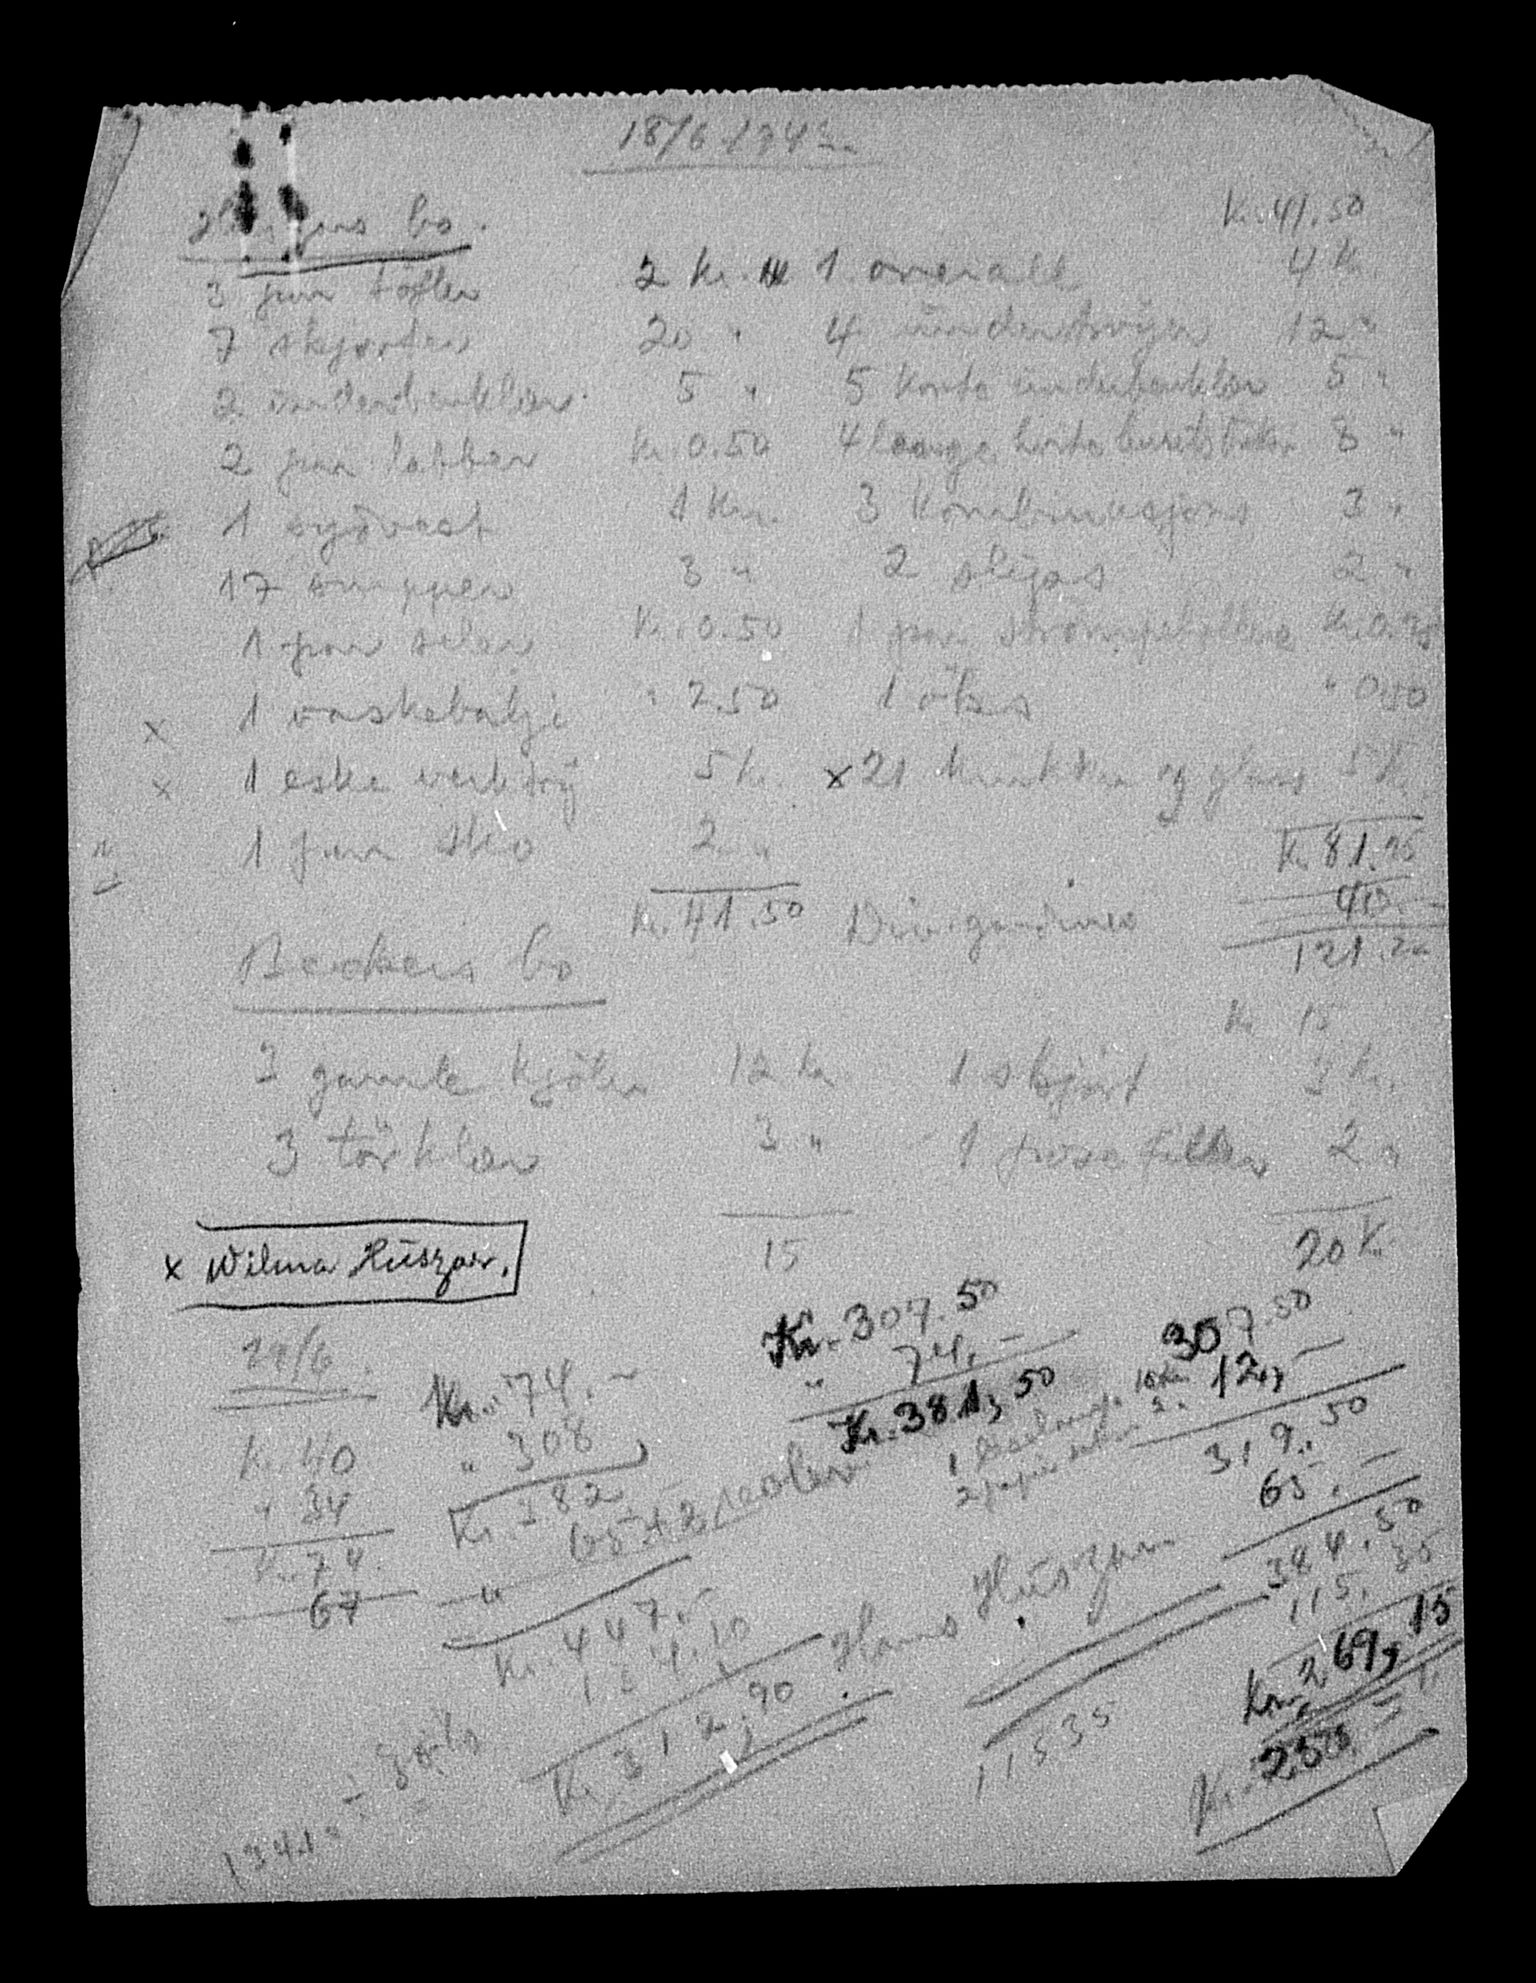 18/6
bo.
Kr. 41.50
3 par töfler 2 Kr. 1 overall 4 Kr.
7 skjorter 20 " 4 ündertröyer 12 "
2 ünderbenkler 5 " 5 korte ünderbenkler 5 "
2 par labber Kr. 0.50 4 lange hvite 8 "
1 sydvest 1 Kr. 3 Kombinasjons 3 "
17 snipper 3 " 2 slips 2 "
1 par seler Kr. 0.50 1 par Kr. 0.75
x 1 vaskebalje " 2.50 1 " 0.50
x 1 eske verktöy 5 Kr. x 21 krukker og glass 5 Kr.
1 par sko 2 "
Kr. 81.25
40.-
Kr. 41.50 Div. gardiner
121.25
Beckers bo
Kr. 15
3 gamle kjöler 12 Kr. 1 skjört 3 Kr.
3 törkler 3 " 1 pose filler 2 "
15 20 Kr.
x Wilma Hüszar.
29/6.
Kr. 40
" 34
Kr. 74.
67
Kr. 74.-
" 308
Kr. 382
" 65
Kr. 447.-
134.10
Kr. 312,90
Kr. 307.50
" 74.-
Kr. 381,50
307.50
12,-
319.50
65.-
384.50
115.35
Kr. 269,15
Kr. 250.-
Hans Hüszar
115.35